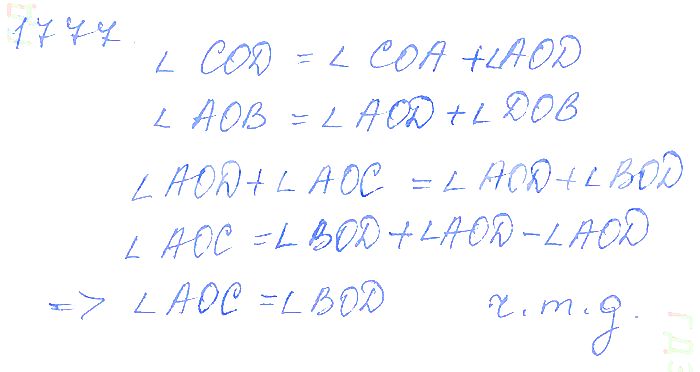 1777.
∠ COD = ∠ COA + ∠AOD
∠ AOB = ∠ AOD + ∠ DOB
∠ AOD + ∠ AOC = ∠ AOD + ∠ BOD
∠ AOC = ∠ BOD + ∠AOD - ∠AOD
=> ∠ AOC = ∠ BOD ч.т.д.